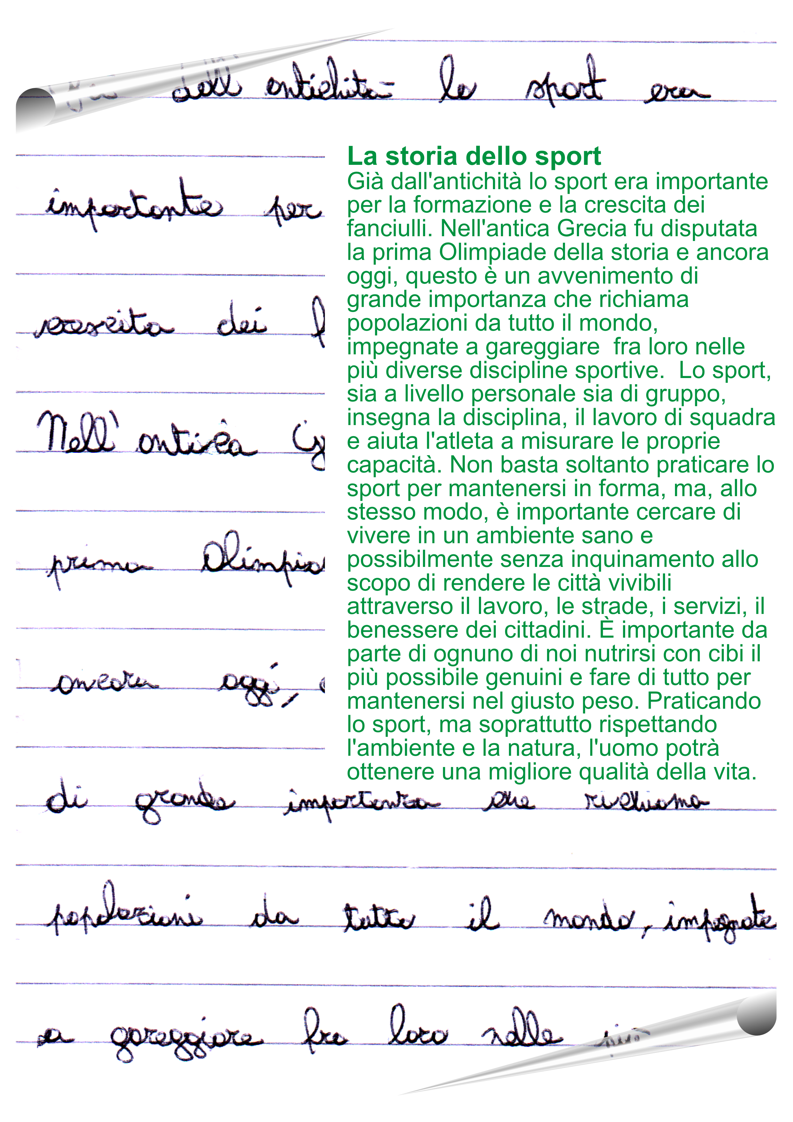 Già dall'antichità lo sport era
La storia dello sport
Già dall'antichità lo sport era importante
per la formazione e la crescita dei
fanciulli. Nell'antica Grecia fu disputata
la prima Olimpiade della storia e ancora
oggi, questo è un avvenimento di
grande importanza che richiama
popolazioni da tutto il mondo,
impegnate a gareggiare  fra loro nelle
più diverse discipline sportive.  Lo sport,
sia a livello personale sia di gruppo,
insegna la disciplina, il lavoro di squadra
e aiuta l'atleta a misurare le proprie
capacità. Non basta soltanto praticare lo
sport per mantenersi in forma, ma, allo
stesso modo, è importante cercare di
vivere in un ambiente sano e
possibilmente senza inquinamento allo
scopo di rendere le città vivibili
attraverso il lavoro, le strade, i servizi, il
benessere dei cittadini. È importante da
parte di ognuno di noi nutrirsi con cibi il
più possibile genuini e fare di tutto per
mantenersi nel giusto peso. Praticando
lo sport, ma soprattutto rispettando
l'ambiente e la natura, l'uomo potrà
ottenere una migliore qualità della vita.
importante per
crescita dei
Nell'antica
prima
ancora oggi,
di grande importanza che richiama
popolazioni da tutto il mondo, impegnate
a gareggiare fra loro nelle più